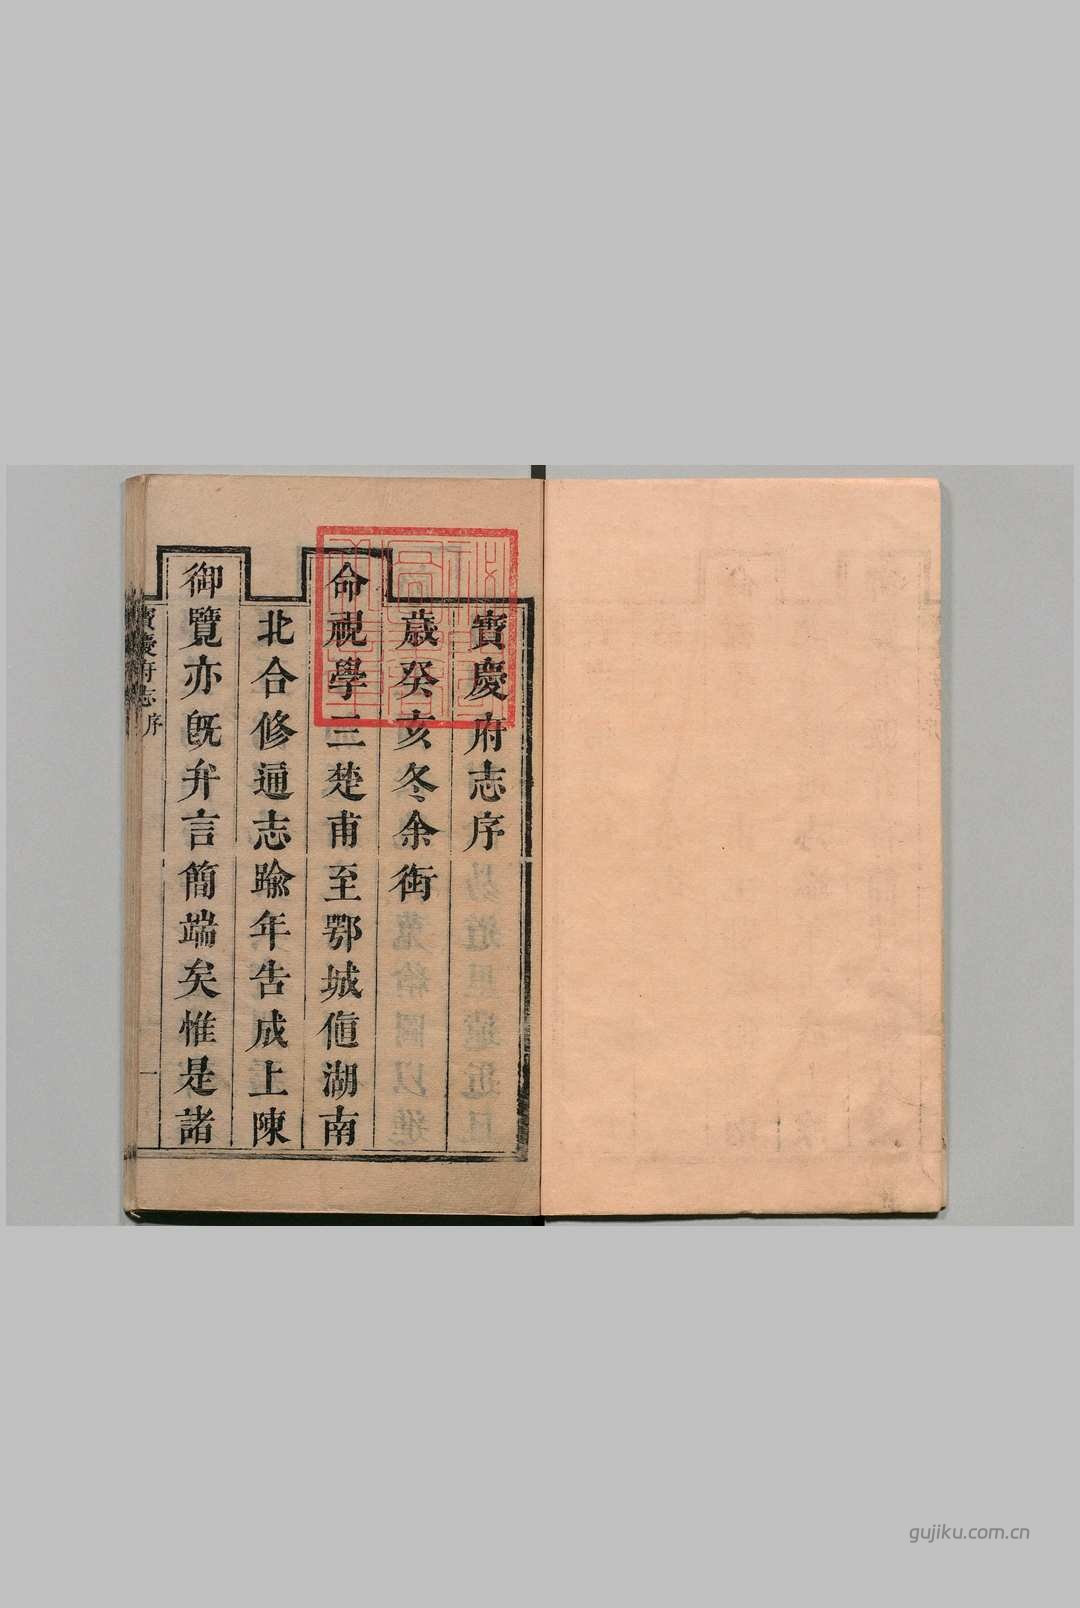 寳慶府志序
歲癸亥冬余銜
命視學三楚甫至鄂城值湖南
北合修通志踰年告成上陳
御覽亦旣弁言簡端矣惟是諸
寳慶府志序
一
gujiku.com.cn